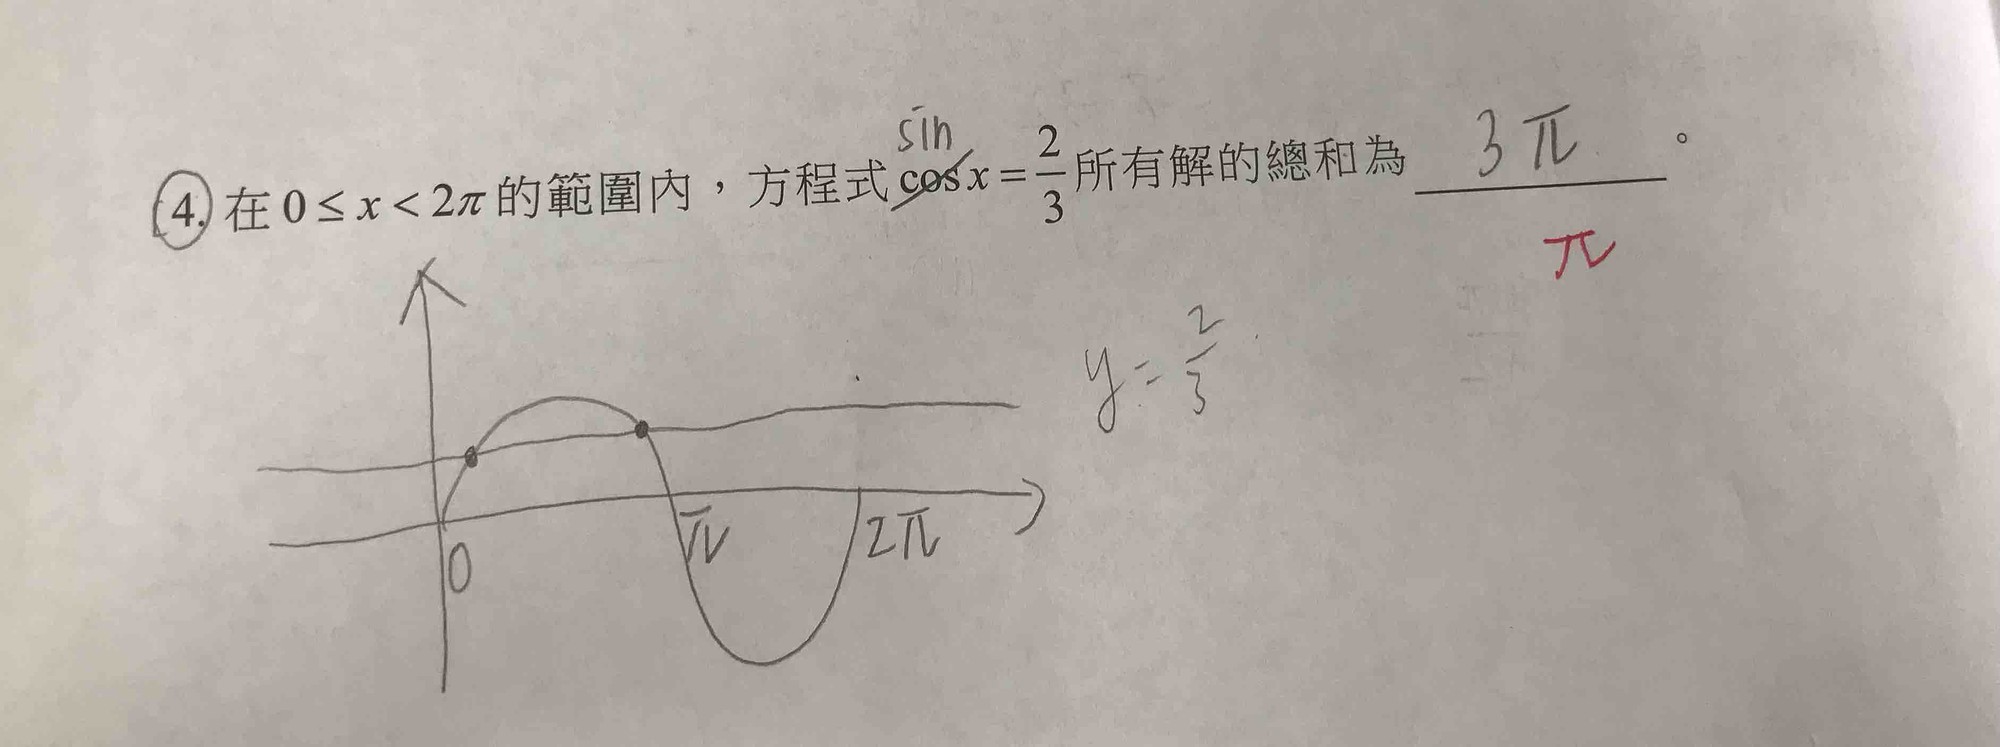 sin
4. 在 0 ≤ x < 2π 的範圍內，方程式 cos x = 2/3 所有解的總和為 3π 。
π
y = 2/3
0 π 2π